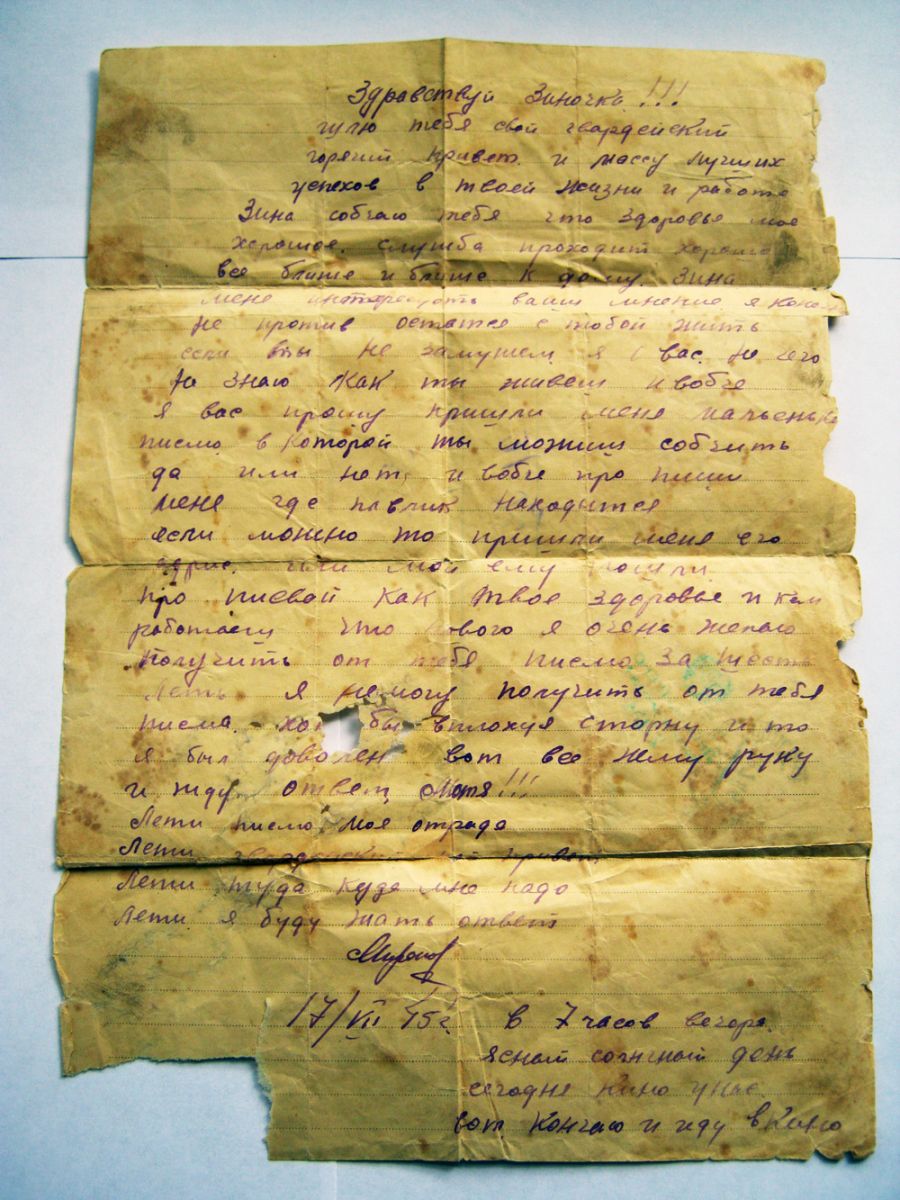 Здравствуй Зиночка !!!
шлю тебя свой гвардейский
горячий привет. и массу лучших
успехов в твоей жизни и работе
Зина собчаю тебя что здоровье мое
хорошое. служба проходит хорошо
все ближе и ближе к дому. Зина
мене интересуеть ваши мнение я
не против остатся с тобой жить
если ты не замужем я с вас не чего
не знаю как ты живеш и вобче
я вас прошу пришли мене маленько
писмо в которой ты можиш собчить
да или неть и вобче про пиши
мене где павлик находится
если можно то пришли меня его
адрис. или мой ему пошли.
про писвай как твое здоровье и кем
работаеш что нового я очень желаю
получить от тебя писмо за шесть
леть я немогу получить от тебя
писма. бы вплохуя сторну и то
я был доволен вот все жму руку
и жду ответ Мотя!!!
Лети писмо моя отрада
Лети гвардейский мой привет
Лети туда куда мне надо
Лети я буду жать ответ
17/VII 45г. в 7 часов вечера.
ясный солнсный день
сегодне кино унас.
вот кончаю и иду вкино